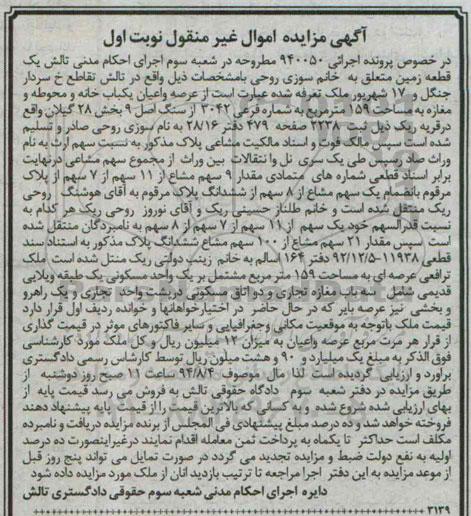 آگهی مزایده اموال غیر منقول نوبت اول
در خصوص پرونده اجرائی ۹۴۰۰۵۰ مطروحه در شعبه سوم اجرای احکام مدنی تالش یک
قطعه زمین متعلق به خانم سوزی روحی بامشخصات ذیل واقع در تالش تقاطع خ سردار
جنگل و ۱۷ شهریور ملک تعرفه شده عبارت است از عرصه واعیان یکباب خانه و محوطه و
مغازه به مساحت ۱۵۹ مترمربع به شماره فرعی ۳۰۴۲ از سنگ اصل ۹ بخش ۲۸ گیلان واقع
درقریه ریک ذیل ثبت ۲۲۳۸ صفحه ۴۷۹ دفتر ۲۸/۱۶ به نام سوزی روحی صادر و تسلیم
شده است سپس مالک فوت و اسناد مالکیت مشاعی پلاک مذکور به نسبت سهم ارث به نام
وراث صادر سپس طی یک سری نقل وانتقالات بین وراث از مجموع سهم مشاعی درنهایت
برابر اسناد قطعی شماره های متمادی مقدار ۹ سهم مشاع از ۱۱ سهم از ۷ سهم از پلاک
مرقوم بانضمام یک سهم مشاع از ۸ سهم از ششدانگ پلاک مرقوم به آقای هوشنگ روحی
ریک منتقل شده است و خانم طلناز حسینی ریک و آقای نوروز روحی ریک هر کدام به
نسبت قدرالسهم خود یک سهم از ۱۱ سهم از ۷ سهم از ۸ سهم به نامبردگان منتقل شده
است سپس مقدار ۲۱ سهم مشاع از ۱۰۰ سهم مشاع ششدانگ پلاک مذکور به استناد سند
قطعی ۱۱۹۳۸-۹۲/۱۲/۵ دفتر ۱۶۴ اسالم به خانم زینب دولتی ریک منتقل شده است ملک
ترافعی عرصه ای به مساحت ۱۵۹ متر مربع مشتمل بر یک واحد مسکونی یک طبقه ویلایی
قدیمی شامل سه باب مغازه تجاری و دو اتاق مسکونی درپشت واحد تجاری و یک راهرو
و بخشی نیز عرصه بایر که در حال حاضر در اختیارخواهانها و خوانده ردیف اول قرار دارد
قیمت ملک باتوجه به موقعیت مکانی وجغرافیایی و سایر فاکتورهای موثر در قیمت گذاری
از قرار هر مرت مربع عرصه واعیان به میزان ۱۲ میلیون ریال و کل ملک مورد کارشناسی
فوق الذکر به مبلغ یک میلیارد و ۹۰ و هشت میلون ریال توسط کارشناس رسمی دادگستری
براورد و ارزیابی گردیده است لذا مال موصوف ۹۴/۸/۴ ساعت ۱۱ صبح روز دوشنبه از
طریق مزایده در دفتر شعبه سوم دادگاه حقوقی تالش به فروش می رسد قیمت پایه از
بهای ارزیابی شده شروع شده و به کسی که بالاترین قیمت را از قیمت پایه پیشنهاد دهند
فروخته خواهد شد و ده درصد مبلغ پیشنهادی فی المجلس از برنده مزایده دریافت و نامبرده
مکلف است حداکثر تا یکماه به پرداخت ثمن معامله اقدام نمایند درغیراینصورت ده درصد
اولیه به نفع دولت ضبط و مزایده تجدید می گردد در صورت تمایل می تواند پنج روز قبل
از موعد مزایده به این دفتر اجرا مراجعه تا ترتیب بازدید انان از ملک مورد مزایده داده شود
دایره اجرای احکام مدنی شعبه سوم حقوقی دادگستری تالش
۳۱۳۹